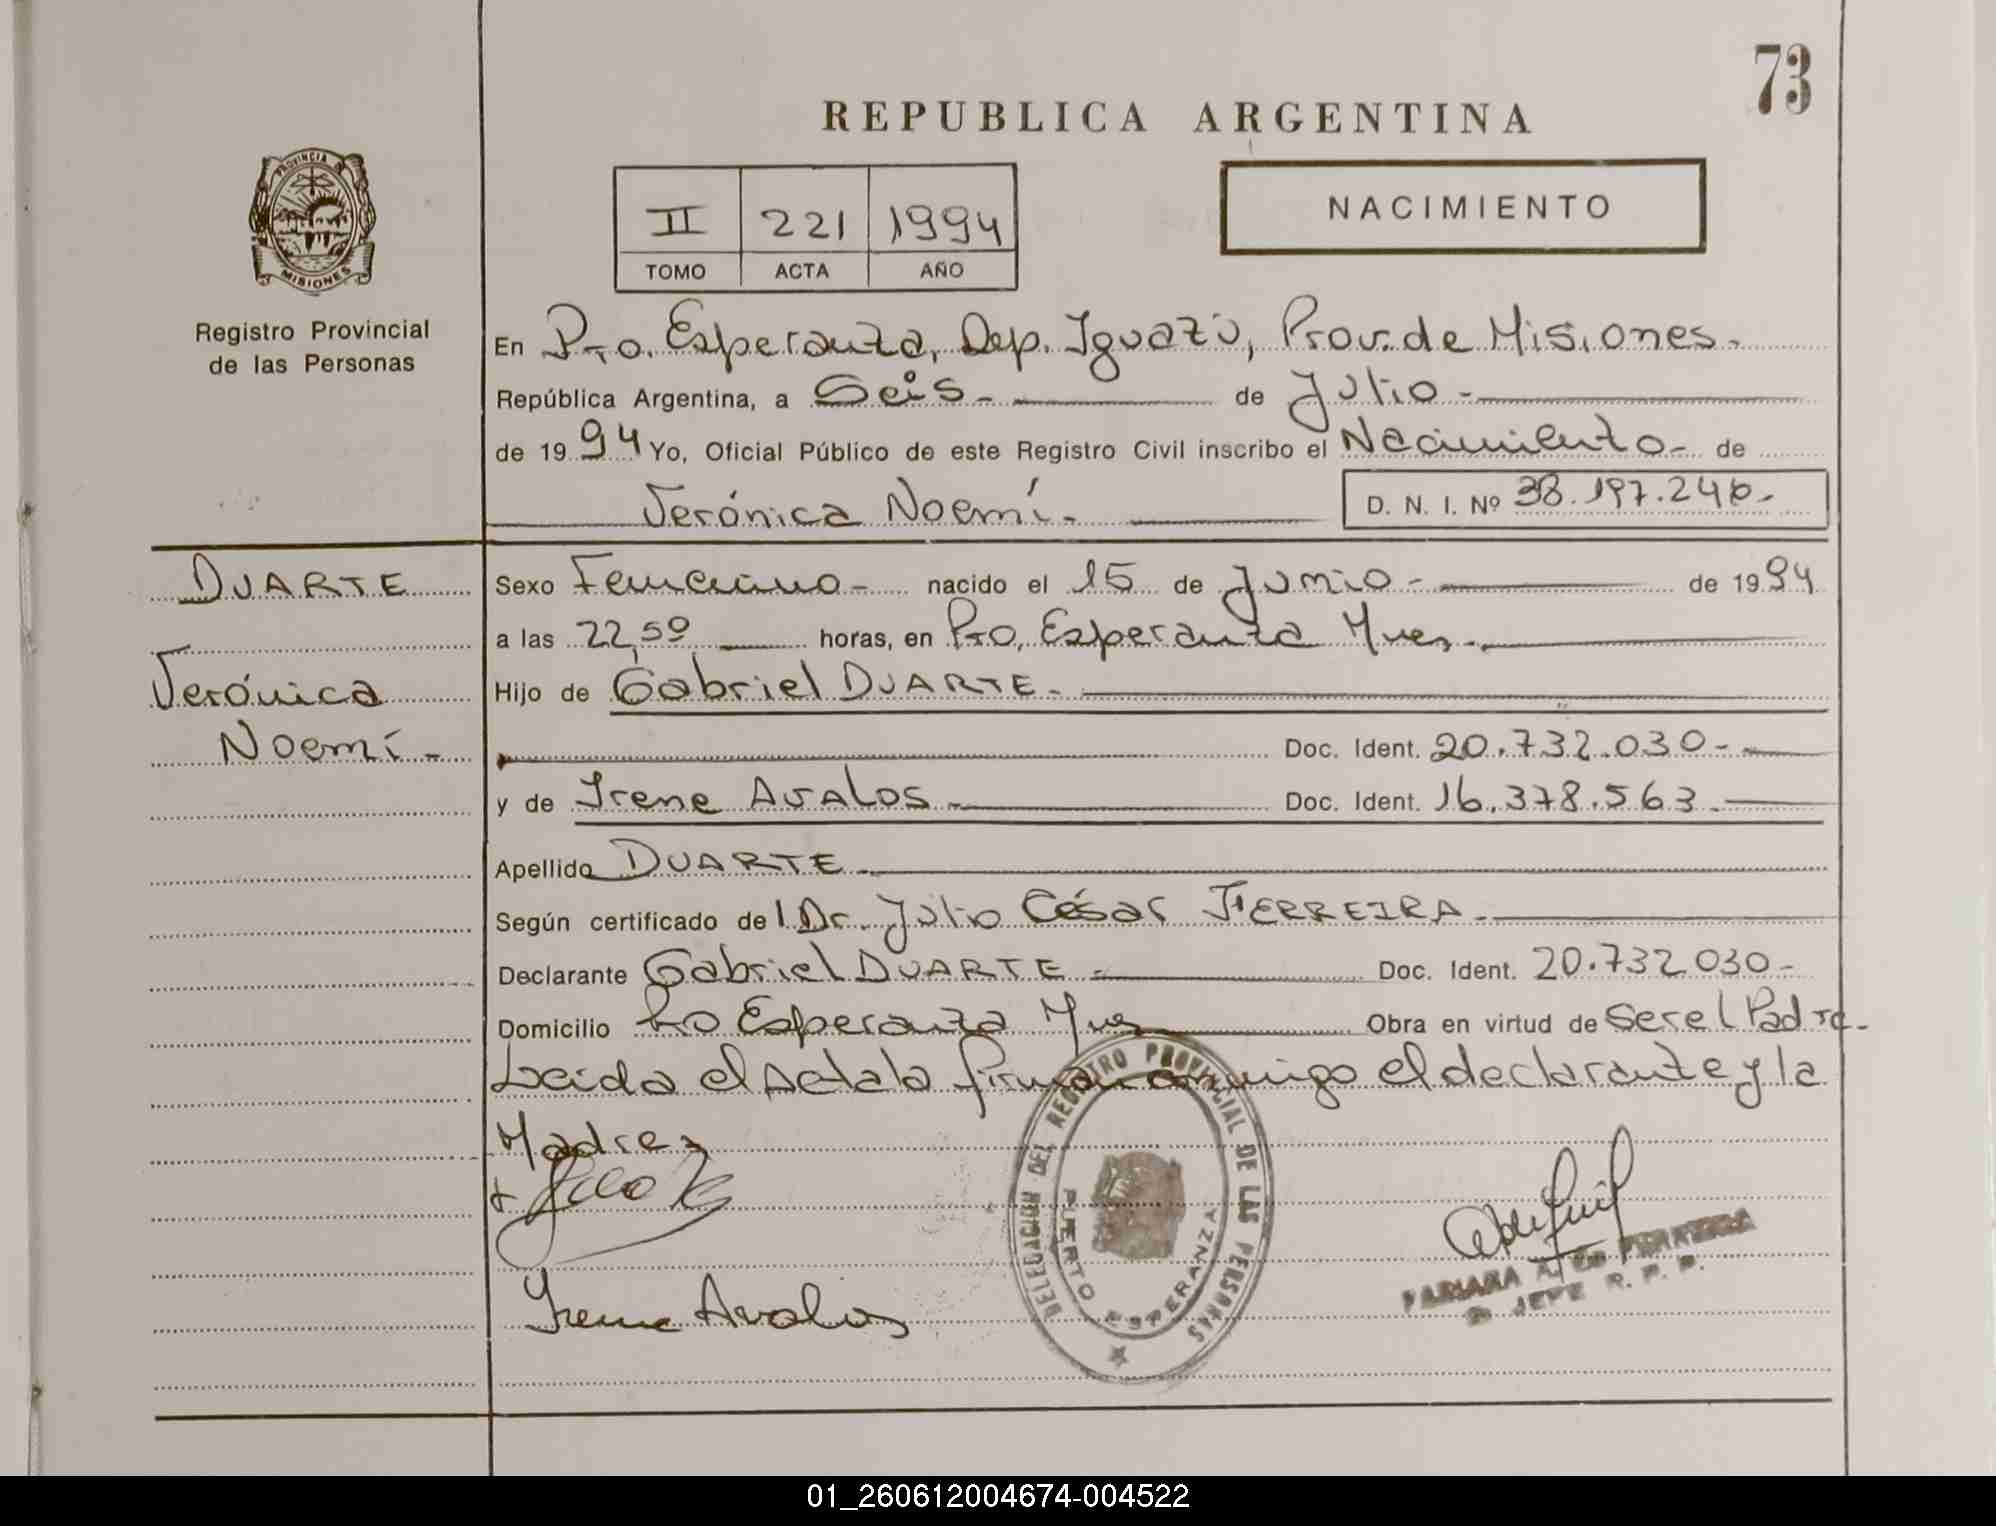 73
REPUBLICA ARGENTINA
PROVINCIA DE
MISIONES
Registro Provincial
de las Personas
II 221 1994
TOMO ACTA AÑO
NACIMIENTO
En Pto. Esperanza, Dep. Iguazú, Prov. de Misiones.
República Argentina, a Seis - de Julio -
de 1994 Yo, Oficial Público de este Registro Civil inscribo el Nacimiento - de
Verónica Noemí. D. N. I. Nº 38.197.246.
DUARTE
Verónica
Noemí -
Sexo Femenino - nacido el 15 de Junio - de 1994
a las 22,50 horas, en Pto. Esperanza Mnes.
Hijo de Gabriel DUARTE.
Doc. Ident. 20.732.030 -
y de Irene AVALOS. Doc. Ident. 16.378.563.
Apellido DUARTE.
Según certificado del Dr. Julio César FERREIRA.
Declarante Gabriel DUARTE - Doc. Ident. 20.732.030 -
Domicilio Pto Esperanza Mnes Obra en virtud de Ser el Padre.
Leida el Acta la firman conmigo el declarante y la
Madre,
Irene Avalos
DELEGACION DEL REGISTRO PROVINCIAL DE LAS PERSONAS
PUERTO ESPERANZA
A. DE FERREIRA
JEFE R. P. P.
01_260612004674-004522